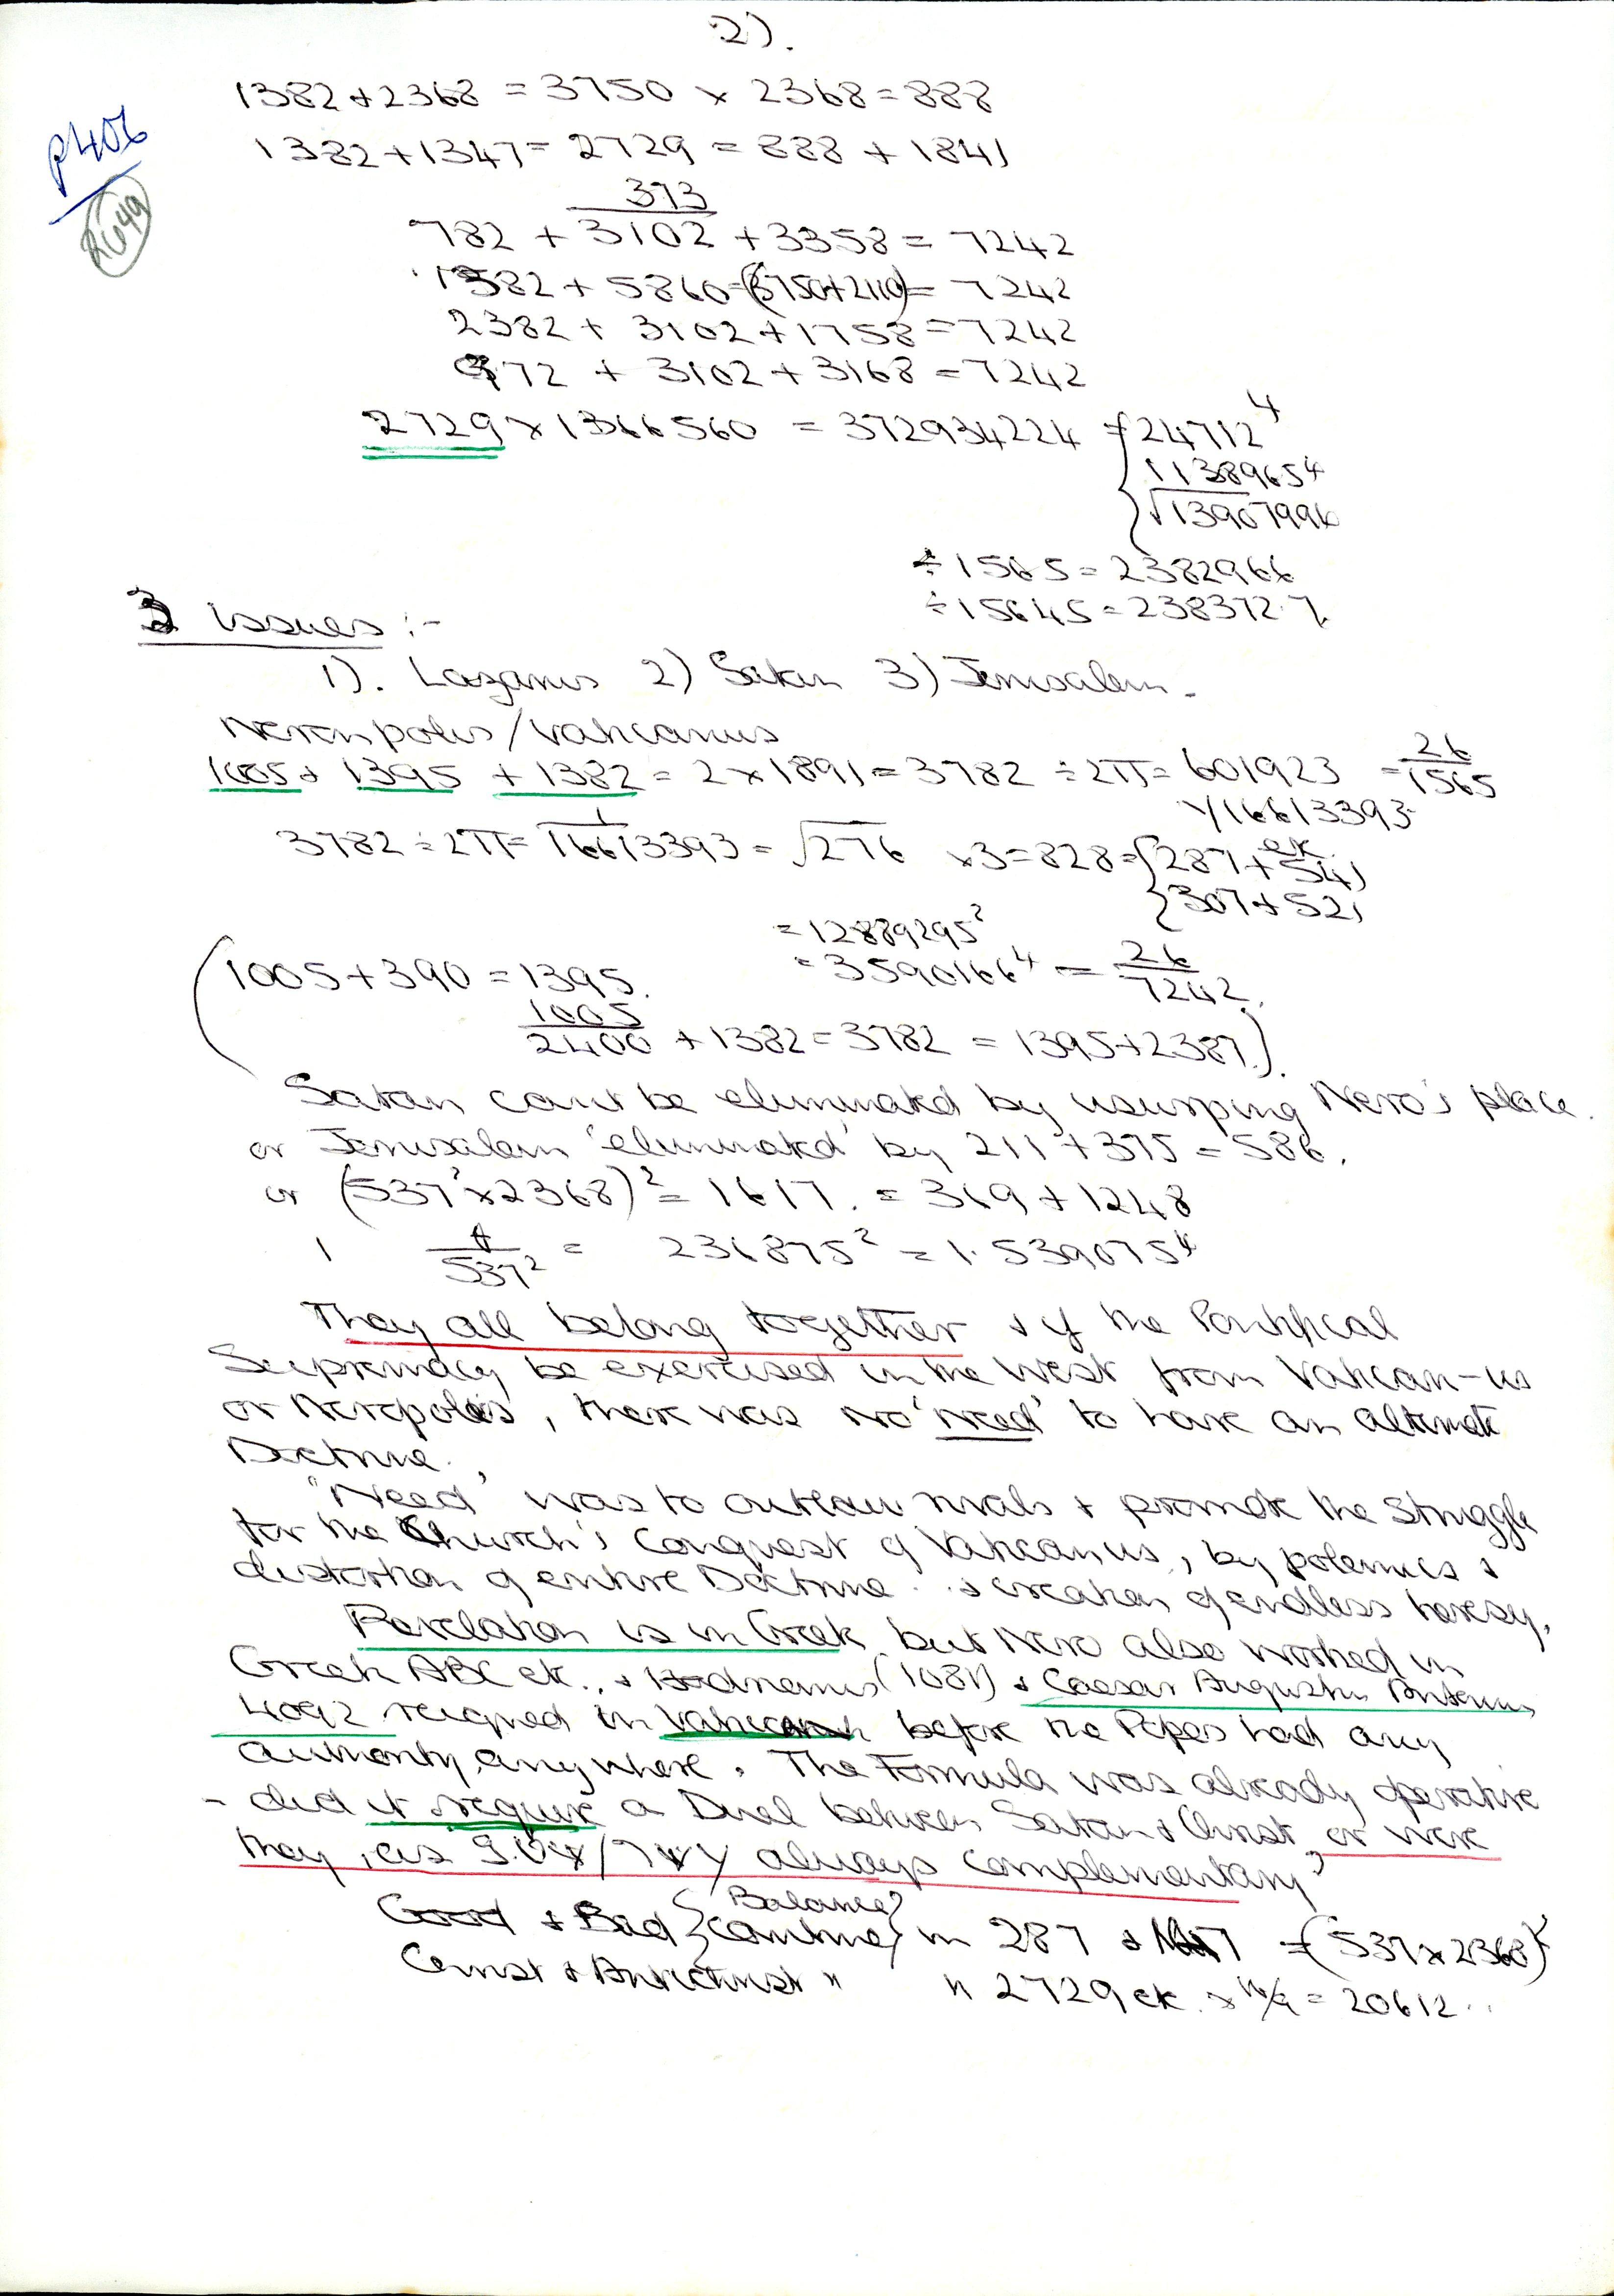 2).
P406
2049
1382 + 2368 = 3750 x 2368 = 888
1382 + 1347 = 2729 = 888 + 1841
373
782 + 3102 + 3358 = 7242
1382 + 5860 = (3750+2110) = 7242
2382 + 3102 + 1758 = 7242
972 + 3102 + 3168 = 7242
2729 x 1366560 = 372934224 = 24712⁴
11389654
√13907996
÷ 1565 = 2382966
÷ 15645 = 238372.7
3 issues :-
1). Lazarus 2) Satan 3) Jerusalem.
Neronpolis / Vaticanus
1005 + 1395 + 1382 = 2 x 1891 = 3782 ÷ 2π = 601923 = 26/1565
1/16613393
3782 ÷ 2π = 1/16613393 = √276 x 3 = 828 = { 287 + 541 etc.
{ 307 + 521
= 12889295²
= 3590166⁴ = 26/7242
(1005 + 390 = 1395.
1005
2400 + 1382 = 3782 = 1395 + 2387.)
Satan can't be eliminated by usurping Nero's place
or Jerusalem 'eliminated' by 211 + 375 = 586.
or (537² x 2368)² = 1617. = 369 + 1248
1/537² = 236875² = 1.539075⁴
They all belong together & if the Pontifical
Supremacy be exercised in the West from Vatican-us
or Neropolis, there was no 'need' to have an alternate
Doctrine.
'Need' was to outlaw rivals & promote the struggle
for the Church's conquest of Vaticanus, by polemics &
distortion of entire Doctrine & creation of endless heresy.
Revelation is in Greek but Nero also worked in
Greek ABC etc., & Hadrianus (1081) & Caesar Augustus Antoninus
4092 reigned in Vatican before the Popes had any
authority anywhere. The Formula was already operative
- did it require a Duel between Satan & Christ or were
they, as always complementary?
Good & Bad { Balance / combine } in 287 + = (537 x 2368)²
Christ & Antichrist " " 2729 etc. x = 20612..